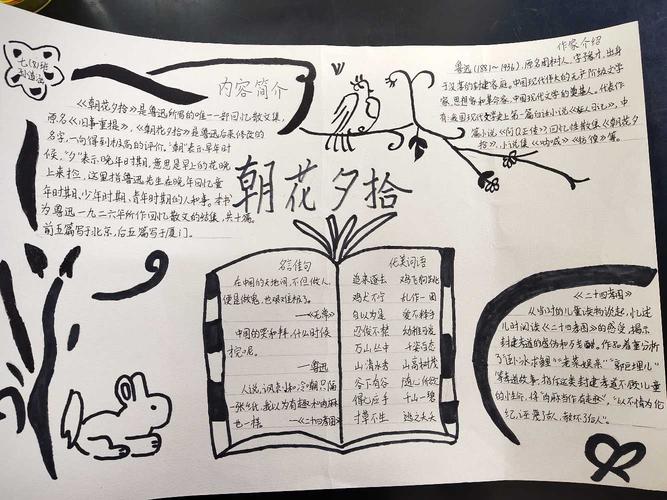 七(8)班
内容简介
《朝花夕拾》是鲁迅所写的唯一一部回忆散文集,
原名《旧事重提》,《朝花夕拾》是鲁迅后来修改的
名字,一向得到极高的评价。"朝"表示早年时
候,"夕"表示晚年时期,意思是早上的花晚
上来捡,这里指鲁迅先生在晚年回忆童
年时期、少年时期、青年时期的人和事。本书
为鲁迅一九二六年所作回忆散文的结集,共十篇。
前五篇写于北京,后五篇写于厦门。
作家介绍
鲁迅(1881~1936),原名周树人,字豫才,出身
于没落的封建家庭。中国现代伟大的无产阶级文学
家、思想家和革命家。中国现代文学的奠基人。代表作
有:我国现代文学史上第一篇白话小说《狂人日记》,中
篇小说《阿Q正传》回忆性散集《朝花夕
拾》,小说集《呐喊》《彷徨》等。
朝花夕拾
名言佳句
在中国的天地间,不但做人,
便是做鬼,也艰难极了。
——《无常》
中国的哭和拜,什么时候
完呢。
——鲁迅
一张纸,我以为有趣和肉麻
也一样 ——《二十四孝图》
优美词语
追来逐去 鸡飞狗跳
鸡犬不宁 扎作一团
自以为是 爱不释手
忍俊不禁 幼稚可爱
万山丛中 千姿百态
山清水秀 山高树茂
谷下有谷 随心所欲
得心应手 千山一碧
寸草不生
《二十四孝图》
从当时的儿童读物谈起,忆述
儿时阅读《二十四孝图》的感受,揭示
封建孝道的虚伪和残酷。作品着重分析
了"卧冰求鲤""老莱娱亲""郭巨埋儿"
等孝道故事,指斥这类封建孝道不顾儿童
的性命,将"肉麻当作有趣","以不情为伦
纪,诬蔑了古人,教坏了后人"。